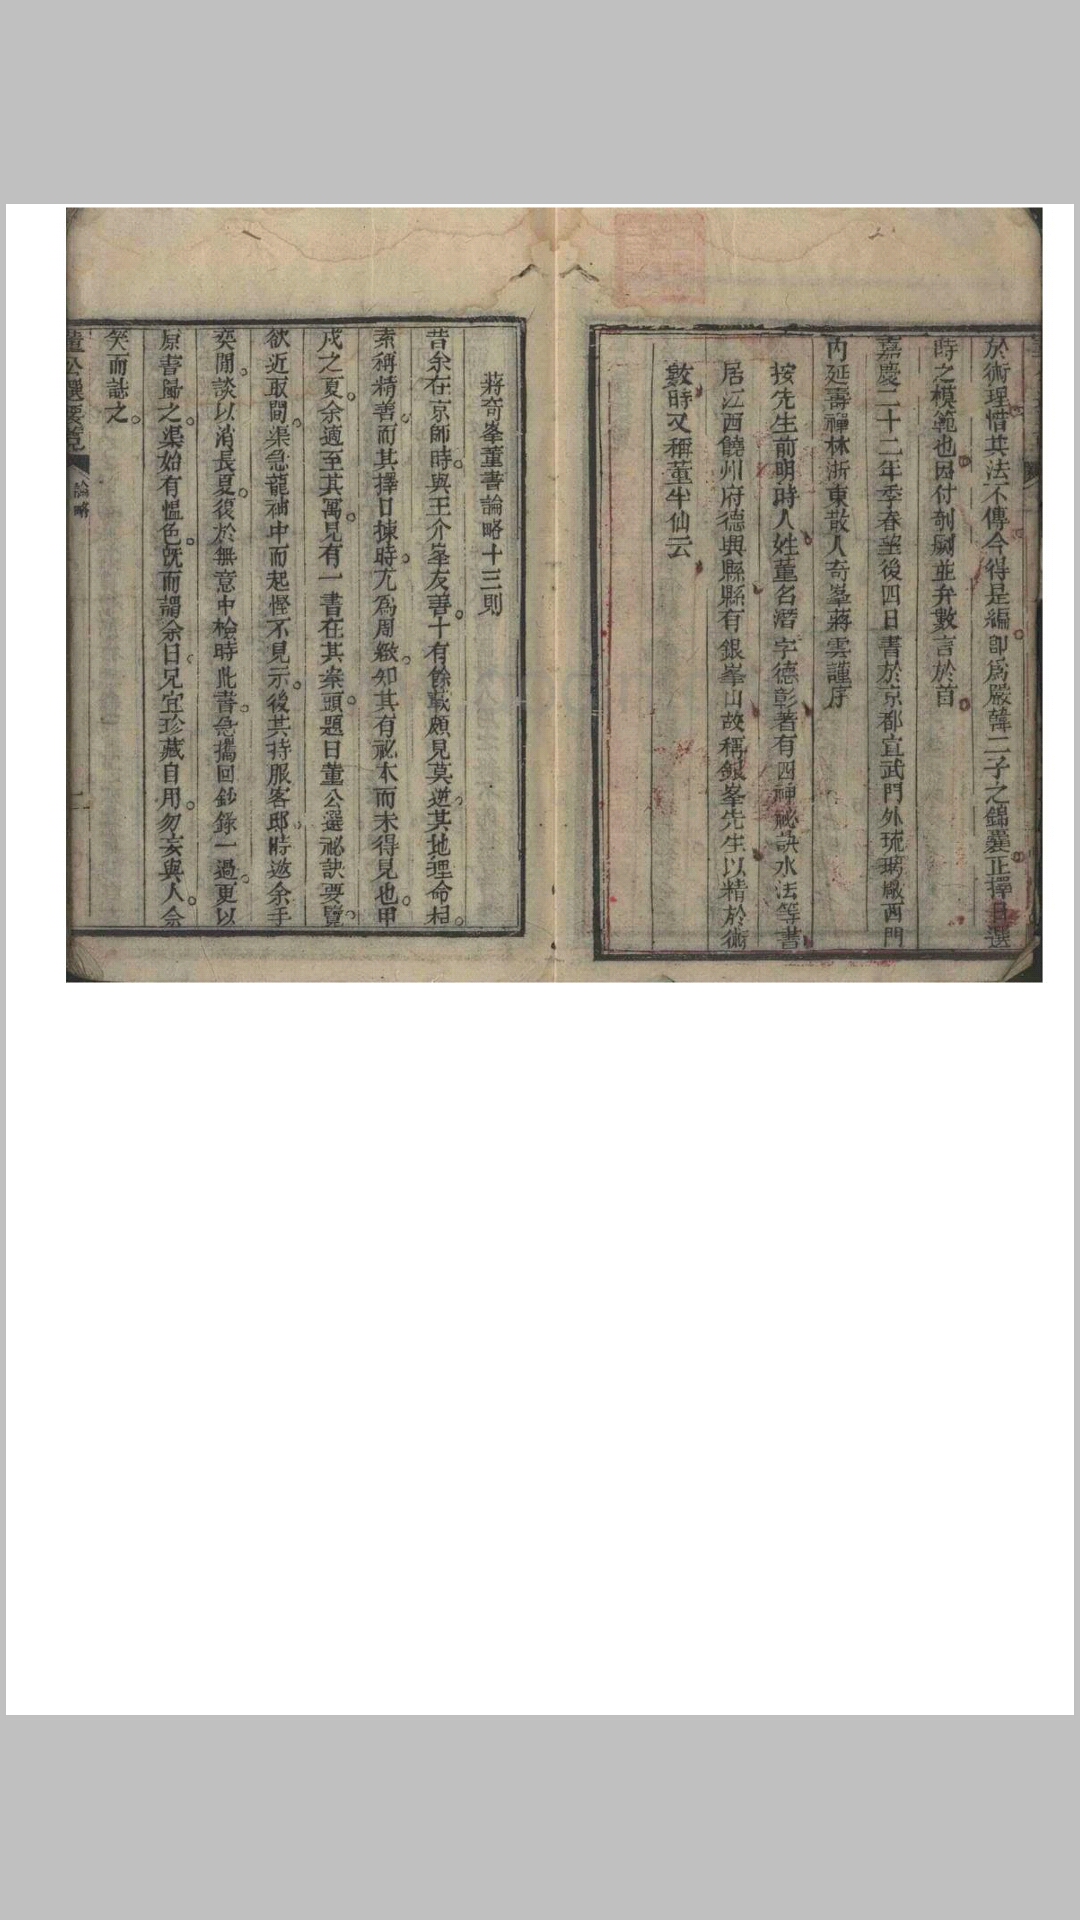 於術理惜其法不傳今得是編卽爲嚴韓二子之錦囊正擇日選
時之模範也因付剞劂並弁數言於首
嘉慶二十二年季春望後四日書於京都宣武門外琉璃厰西門
內延壽禪林浙東散人奇峯蔣雲謹序
按先生前明時人姓董名潛字德彰著有四神祕訣水法等書
居江西饒州府德興縣縣有銀峯山故稱銀峯先生以精於術
數時又稱董半仙云
蔣奇峯董書論略十三則
昔余在京師時與王介峯友善十有餘載頗見莫逆其地理命相
素稱精善而其擇日揀時尤爲周緻知其有祕本而未得見也甲
戌之夏余適至其寓見有一書在其案頭題曰董公選祕訣要覽
欲近取閱渠急龍袖中而起慳不見示後其持服客邸時邀余手
奕閒談以消長夏復於無意中檢時此書急攜回鈔錄一過更以
原書歸之渠始有慍色旣而謂余曰兄宜珍藏自用勿妄與人余
笑而誌之
董公選要覽
論略
一